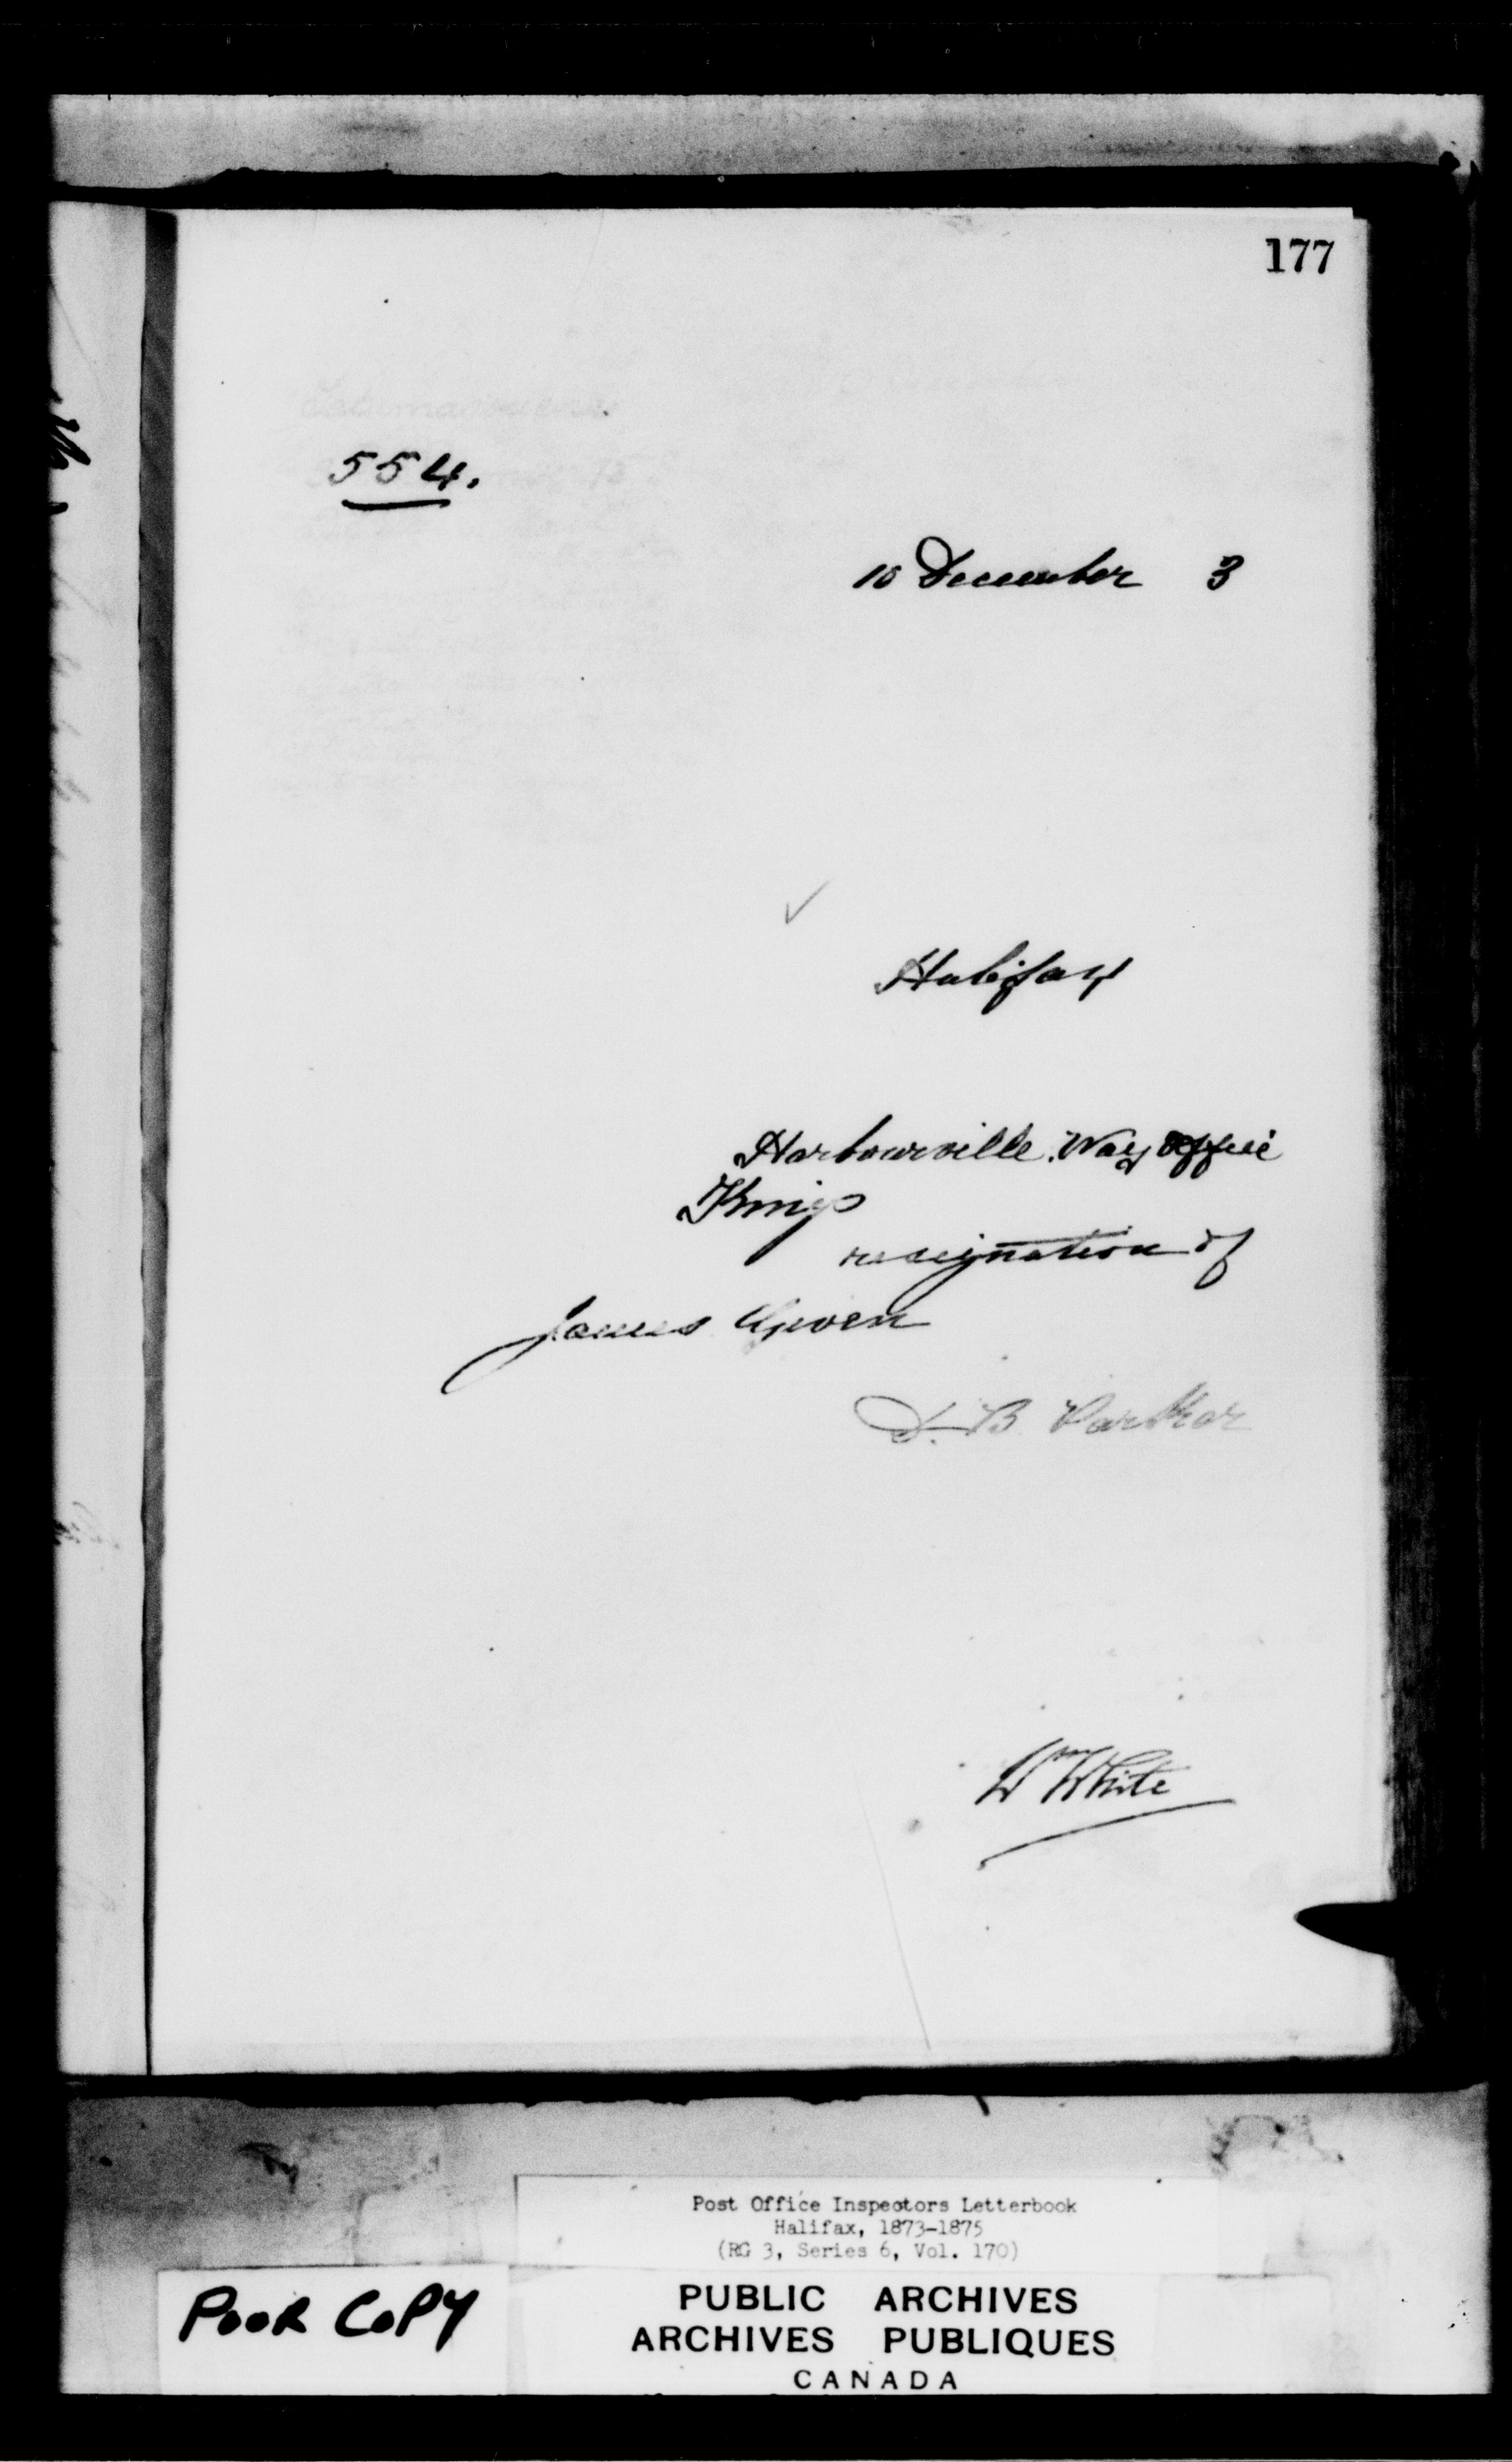 177
554.
10 December 3
Halifax
Harbourville Way Office
Kings
resignation of
James
D. B. Parker
Wm White
Post Office Inspectors Letterbook
Halifax, 1873-1875
(RG 3, Series 6, Vol. 170)
POOR COPY
PUBLIC ARCHIVES
ARCHIVES PUBLIQUES
CANADA